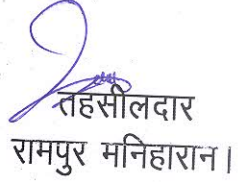 तहसीलदार
रामपुर मनिहारान।